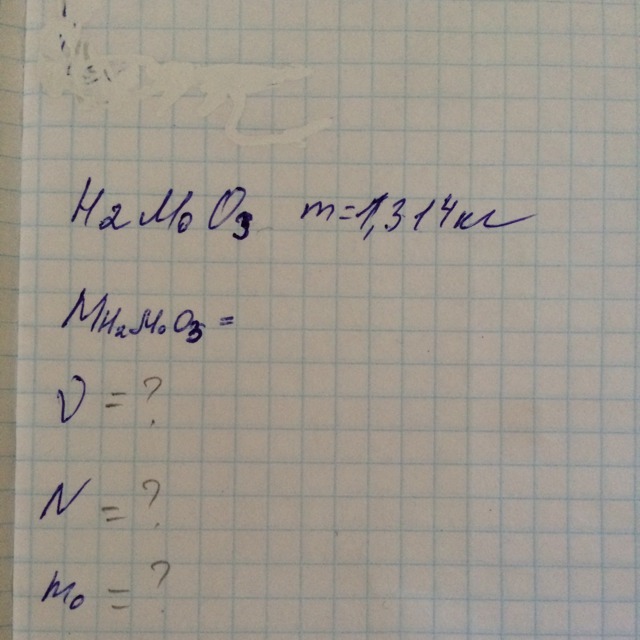 H2MoO3 m=1,314кг
MH2MoO3 =
ν = ?
N = ?
m0 = ?